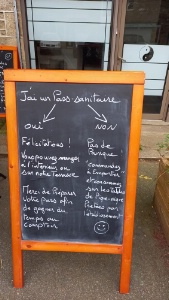 J'ai un Pass sanitaire
oui
NON
Félicitations !
Vous pouvez manger
à l'intérieur ou
sur notre terrasse
Merci de Préparer
votre pass afin
de gagner du
temps au
comptoir
Pas de
Panique
"commandez
à l'emporter"
sur les tables
de Pique-nique